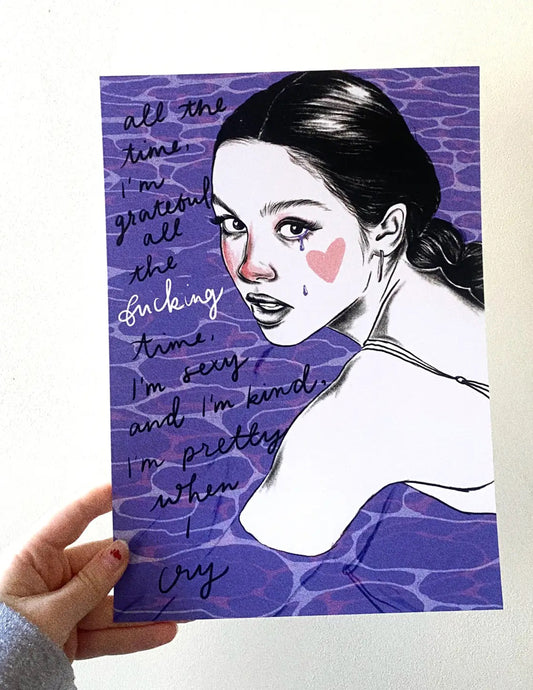 all the
time,
I'm
grateful
all
the
fucking
time,
I'm sexy
and I'm kind,
I'm pretty
when
I
cry